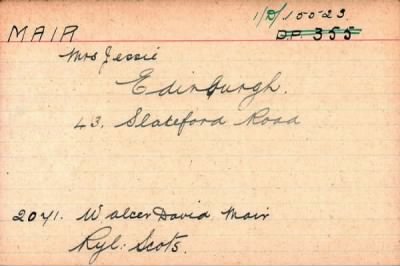 1/D/15523.
MAIR DP 355
Mrs Jessie
Edinburgh.
43. Slateford Road
2041. Walter David Mair
Ryl: Scots.